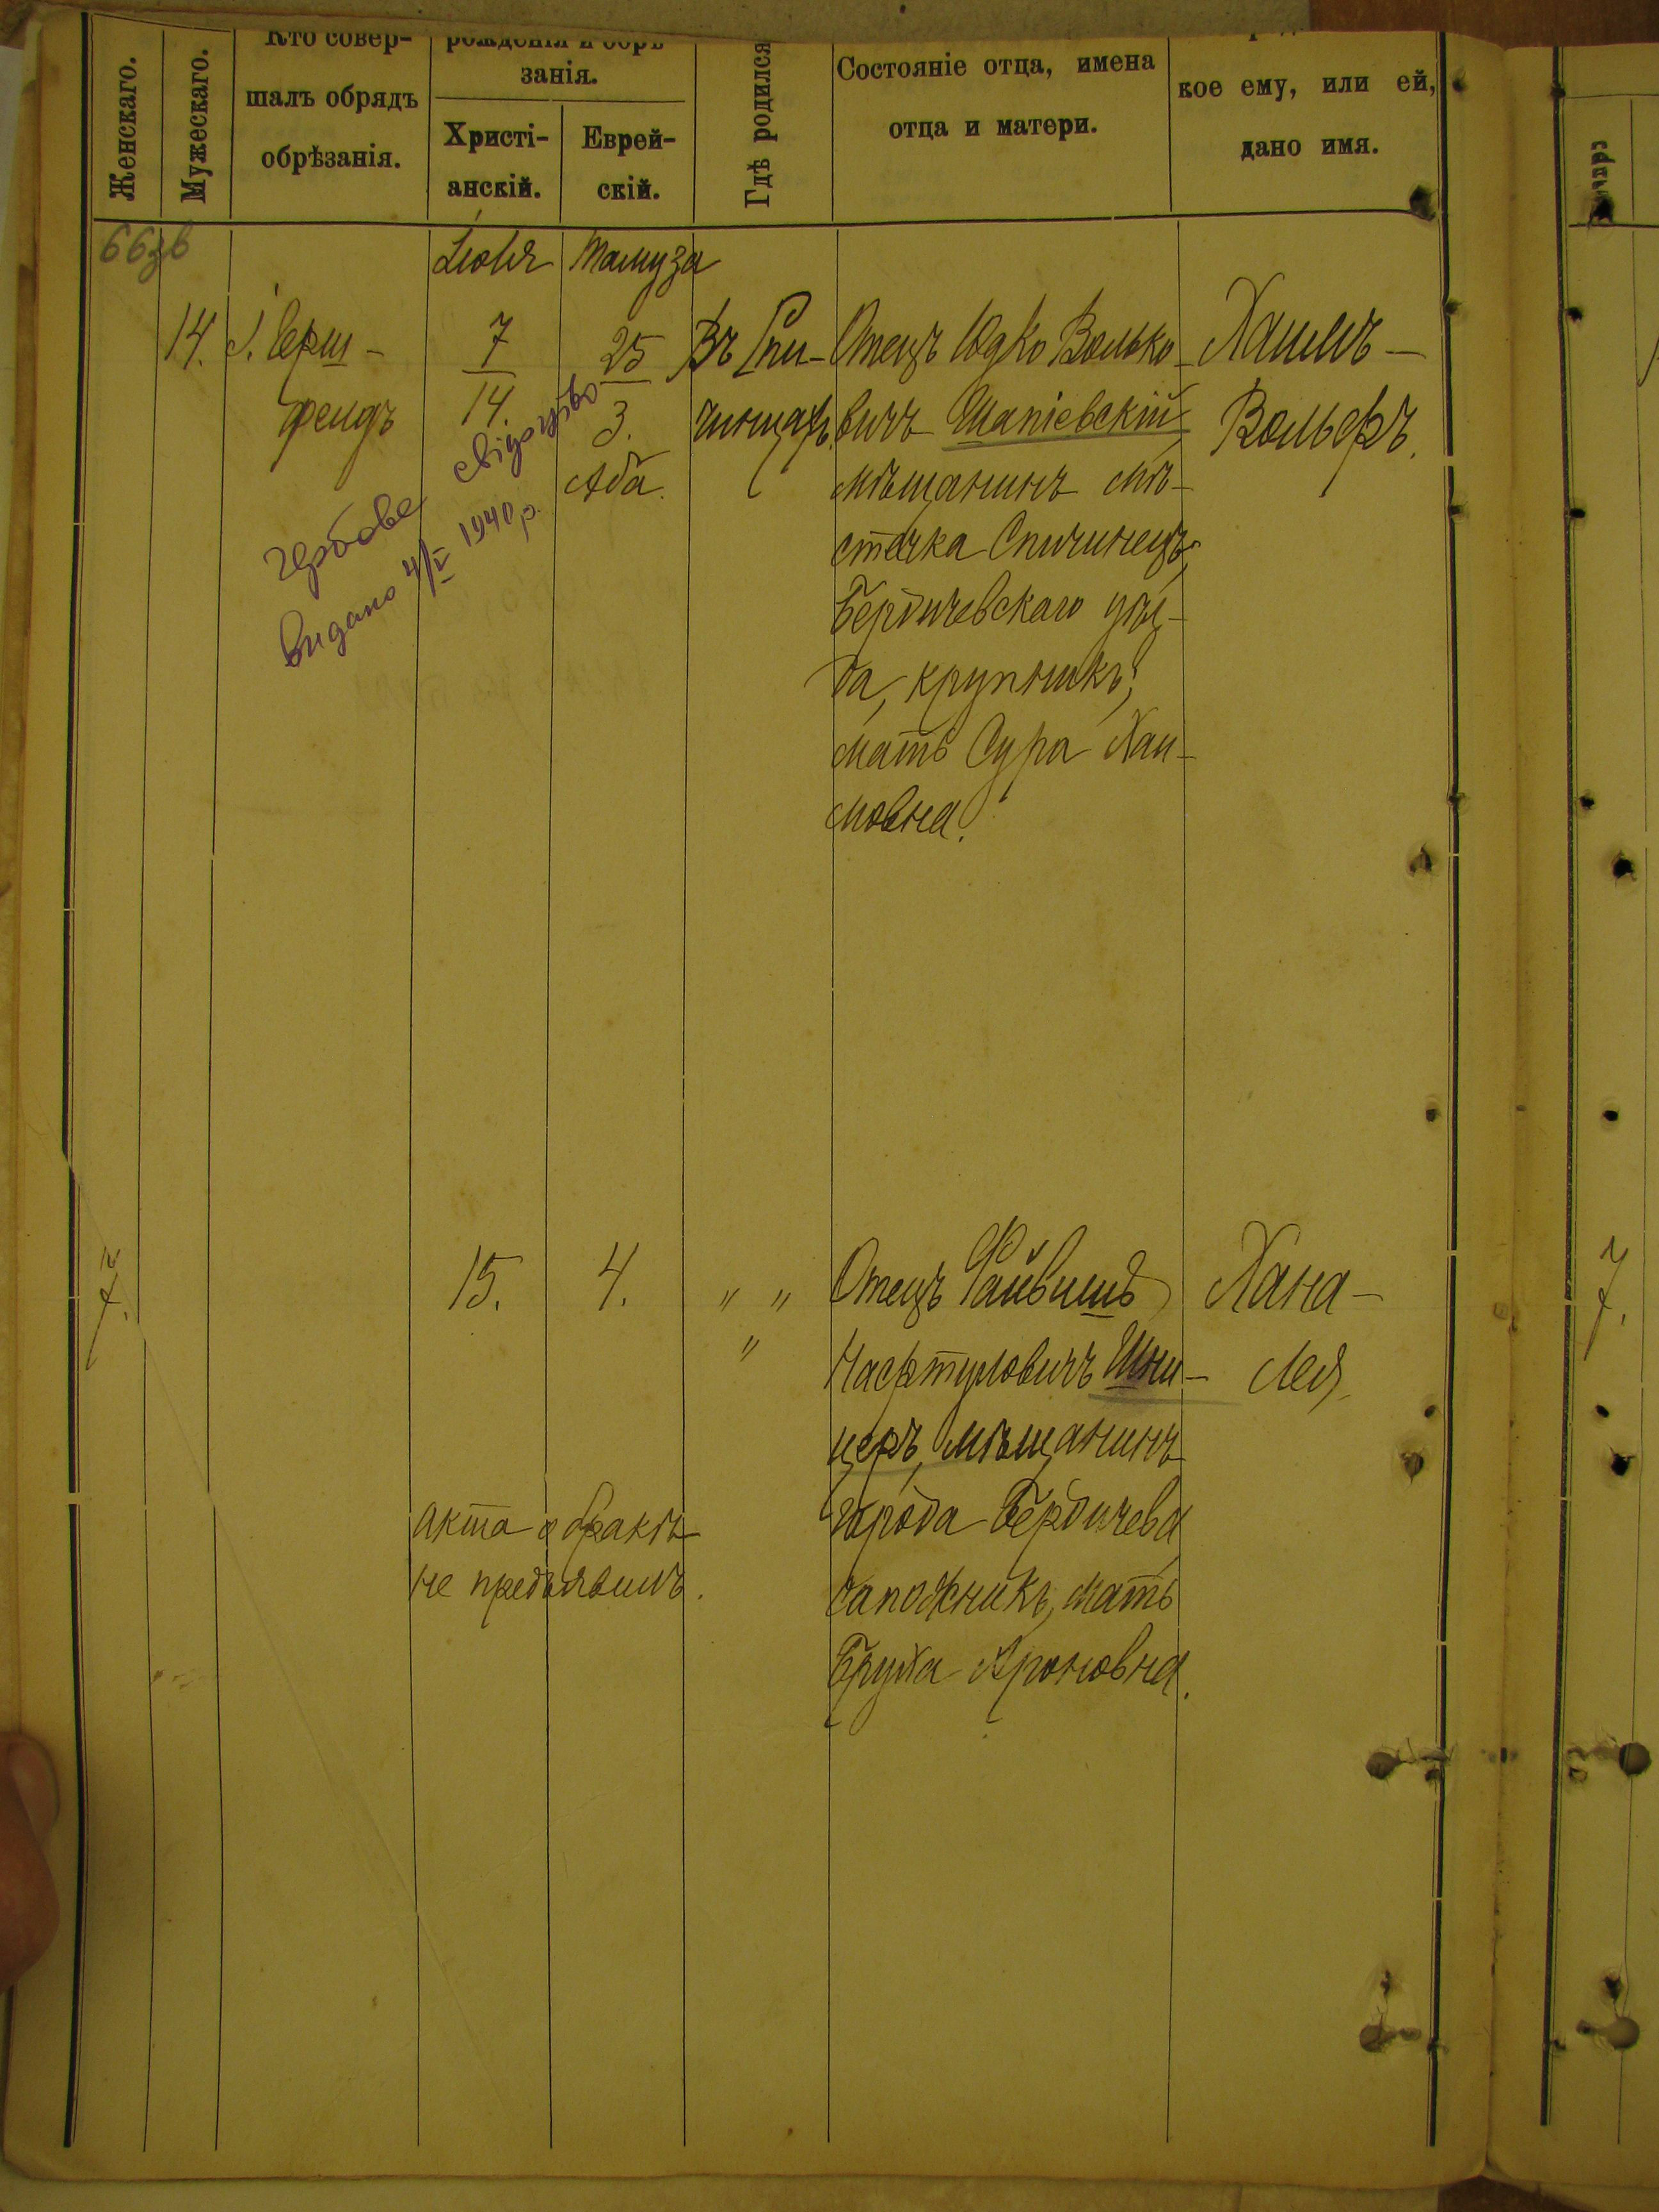 Женскаго.
Мужескаго.
Кто совер-
шалъ обрядъ
обрѣзанія.
рожденія и обрѣ
занія.
Христі-
анскій.
Еврей-
скій.
Гдѣ родился
Состояніе отца, имена
отца и матери.
кое ему, или ей,
дано имя.
66зв
Іюля
Тамуза
14.
І. Верш-
фендъ
7
14.
25
3.
Аба.
Въ Спи-
чинцахъ.
Отецъ Юдко Волько-
вичъ Шапіевскій
мѣщанинъ мѣ-
стечка Спичинецъ,
Бердичевскаго уѣз-
да, крупникъ;
мать Сура Хаи-
мовна.
Хаимъ-
Вольфъ.
гербове свідоцтво
видано 4/V 1940 р.
7.
15.
4.
" "
"
Отецъ Файвишъ
Нафтуловичъ Шни-
церъ, мѣщанинъ
города Бердичева
сапожникъ, мать
Бруха Ароновна.
Хана-
Лея.
акта о бракѣ
не предъявилъ.
7.